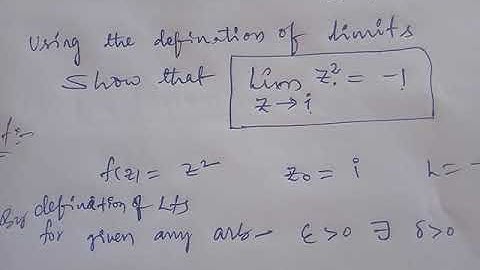 Using the defination of limits
Show that lim z² = -1
z → i
f:-
f(z) = z² z₀ = i L = -
By defination of Lts
for given any arb- ε > 0 ∃ δ > 0